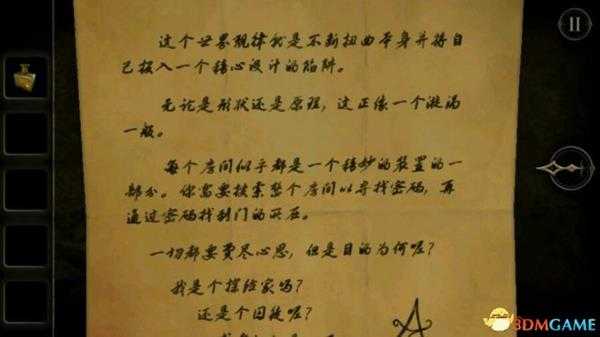 这个世界规律我是不断扭曲本身并将自
己投入一个精心设计的陷阱。
无论是形状还是原理，这正像一个漩涡
一般。
每个房间似乎都是一个精妙的装置的一
部分。你需要探索整个房间以寻找密码，再
通过密码找到门的灵石。
一切都要费尽心思，但是目的为何呢？
我是个探险家吗？
还是个囚徒呢？
3DMGAME